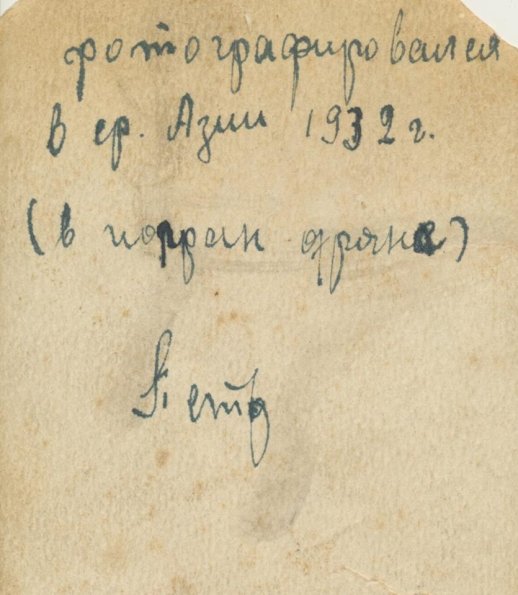 фотографировался
в ср. Азии 1932 г.
(в погран отряде)